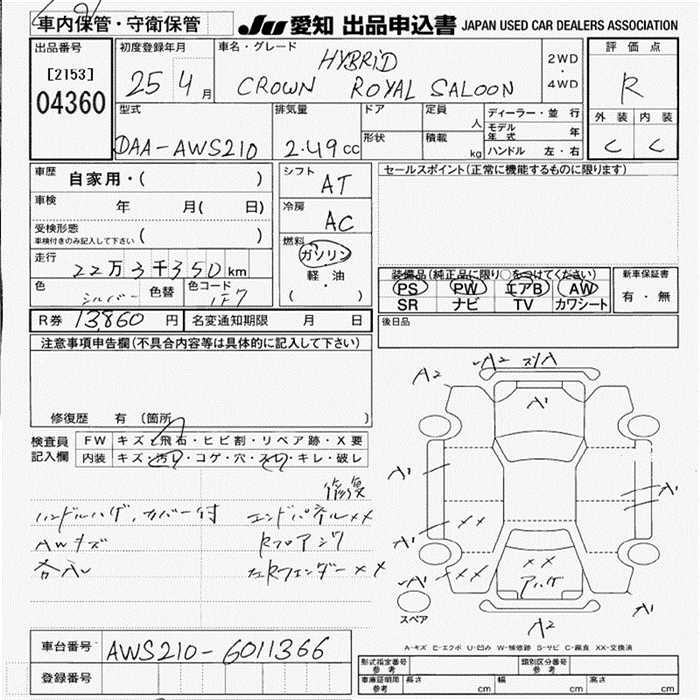 車内保管・守衛保管
JU 愛知 出品申込書 JAPAN USED CAR DEALERS ASSOCIATION
出品番号
[2153]
04360
初度登録年月
25 4 月
車名・グレード
HYBRID
CROWN ROYAL SALOON
2WD
・
4WD
評価点
R
外装 内装
C C
型式
DAA-AWS210
排気量
2.49cc
ドア
形状
定員
人
積載
kg
ディーラー・並行
モデル年式 年
ハンドル 左・右
車歴 自家用・( )
車検 年 月( 日)
受検形態
車検付きのみ記入して下さい ( )
走行
22万3千350km
色 シルバー 色替 色コード 1F7
シフト
AT
冷房
AC
燃料
ガソリン
軽・油
( ・ )
セールスポイント(正常に機能するものに限ります)
装備品(純正品に限り○をつけてください)
PS PW エアB AW
SR ナビ TV カワシート
新車保証書
有・無
R券 13,860 円 名変通知期限 月 日
後日品
注意事項申告欄(不具合内容等は具体的に記入して下さい)
修復歴 有(箇所 )
検査員
記入欄
FW キズ・飛石・ヒビ割・リペア跡・X要
内装 キズ・汚れ・コゲ・穴・スレ・キレ・破レ
修復
ハンドルハゲ,カバー付 エンドパネルXX
AWキズ Rフロアジワ
各入レ 左RフェンダーXX
A2 A2 スリA
A1
A1 A1
XX
A1
XXX
XX
アハゲ
A1
スペア
A2 A1
A-キズ E-エクボ U-凹み W-補修跡 S-サビ C-腐食 XX-交換済
車台番号 AWS210-6011366
登録番号
型式指定番号
参考
類別区分番号
参考
車庫証明用
参考
長さ cm 幅 cm 高さ cm